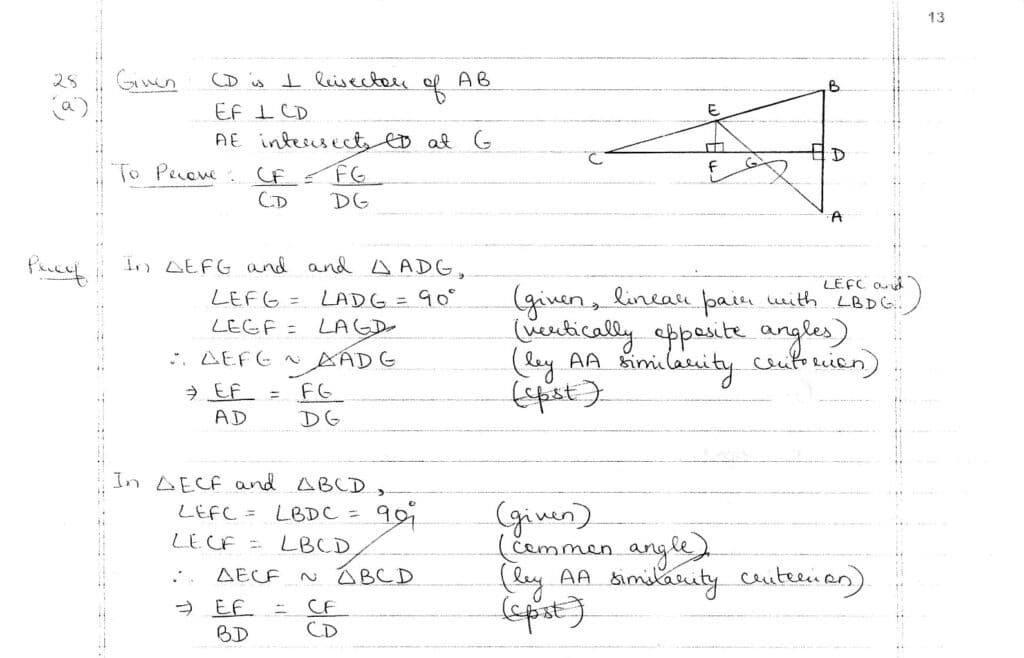 13
28 Given : CD is ⊥ bisector of AB
(a) EF ⊥ CD
AE intersects CD at G
To Prove : CF/CD = FG/DG
B
E
C
F
G
D
A
Proof In ΔEFG and and Δ ADG,
∠EFG = ∠ADG = 90° (given, linear pair with ∠EFC and ∠BDG)
∠EGF = ∠AGD (vertically opposite angles)
∴ ΔEFG ~ ΔADG (by AA similarity criterion)
⇒ EF/AD = FG/DG (cpst)
In ΔECF and ΔBCD,
∠EFC = ∠BDC = 90° (given)
∠ECF = ∠BCD (common angle)
∴ ΔECF ~ ΔBCD (by AA similarity criterion)
⇒ EF/BD = CF/CD (cpst)